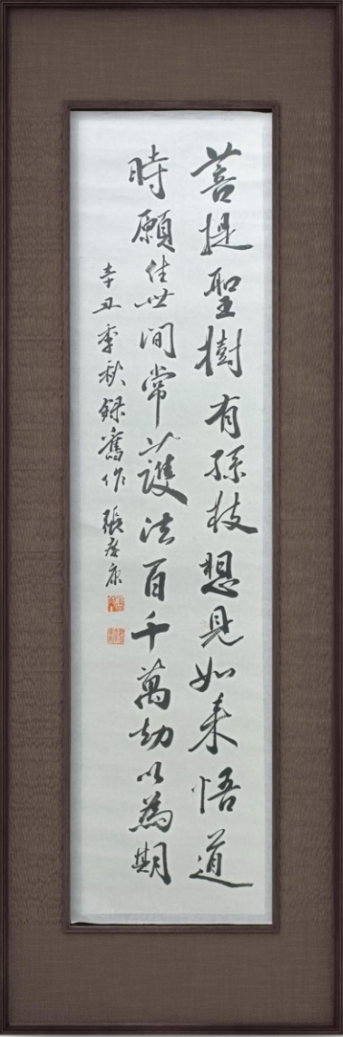 菩提聖樹有孫枝想見如来悟道
時願住世間常護法百千萬劫以為期
辛丑季秋録舊作 張孝康